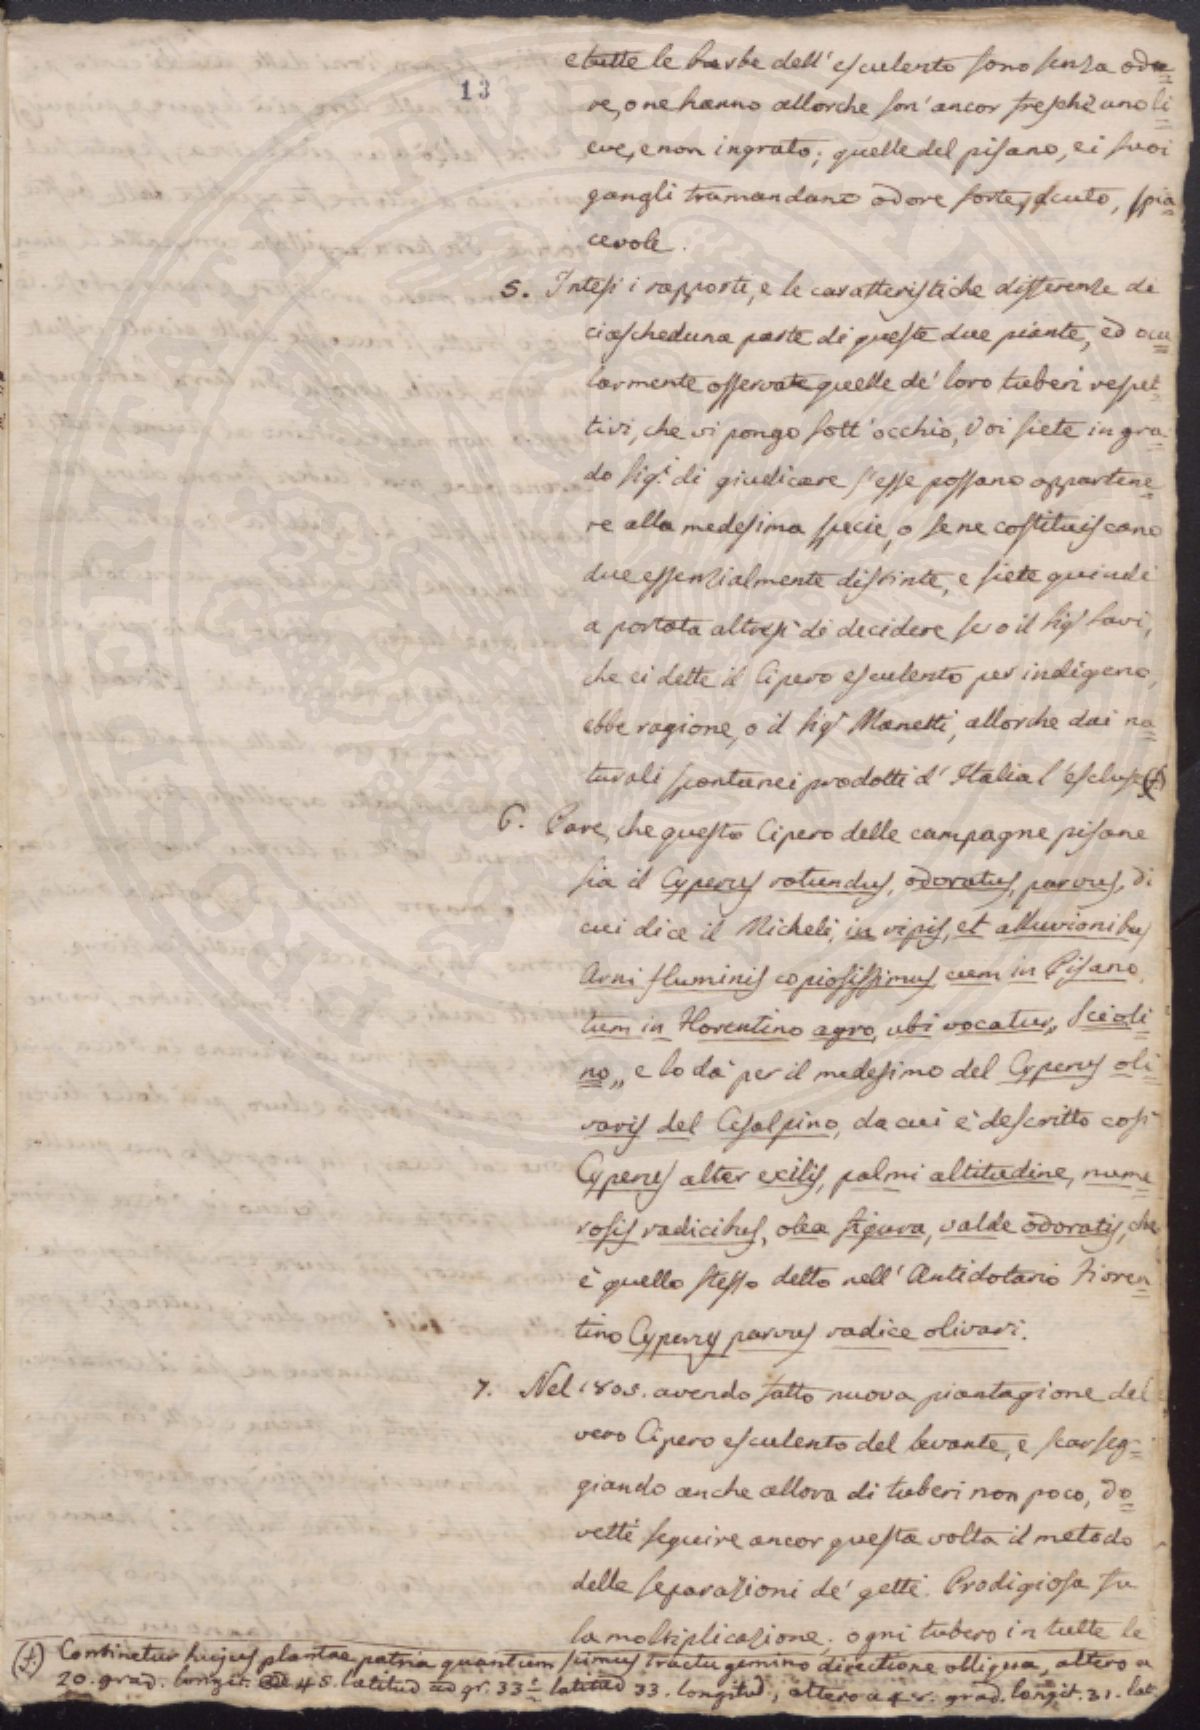 13
e tutte le barbe dell' esculento sono senza odo=
re, o ne hanno allorche son' ancor fresche uno li
eve, e non ingrato; quelle del pisano, e i suoi
gangli tramandano odore forte, acuto, spia=
cevole.
5. Intesi i rapporti, e le caratteristiche differenze di
ciascheduna parte di queste due piante, ed ocu=
larmente osservate quelle de' loro tuberi respet=
tivi, che vi pongo sott' occhio, voi siete in gra=
do sig.i di giudicare s' esse possano appartene=
re alla medesima specie, o se ne costituiscano
due essenzialmente distinte, e siete quindi
a portata altresi di decidere se o il sig.r Savi,
che ci dette il Cipero esculento per indigeno,
ebbe ragione, o il sig.r Manetti, allorche dai na=
turali spontanei prodotti d' Italia l' escluse (f.)
6. Pare, che questo Cipero delle campagne pisane
sia il Cyperus rotundus, odoratus, parvus, di
cui dice il Micheli, in ripis, et alluvionibus
Arni fluminis copiosissimus cum in Pisano,
tum in Florentino agro, ubi vocatur,, Scioli=
no,, e lo dà per il medesimo del Cyperus oli=
varis del Cesalpino, da cui è descritto così
Cyperus alter exilis, palmi altitudine, nume=
rosis radicibus, olea figura, valde odoratis, che
è quello stesso detto nell' Antidotario Fioren=
tino Cyperus parvus radice olivari.
7. Nel 1805. avendo fatto nuova piantagione del
vero Cipero esculento del levante, e scarseg=
giando anche allora di tuberi non poco, do=
vetti seguire ancor questa volta il metodo
delle separazioni de' getti. Prodigiosa fu
la moltiplicazione; ogni tubero in tutte le
(f.) Continetur hujus plantae patria quantum scimus tractu gemino directione obliqua, altero a
20. grad. longit. 45. latitud ad gr. 33 longitud., altero a grad. longit. 31. lat.